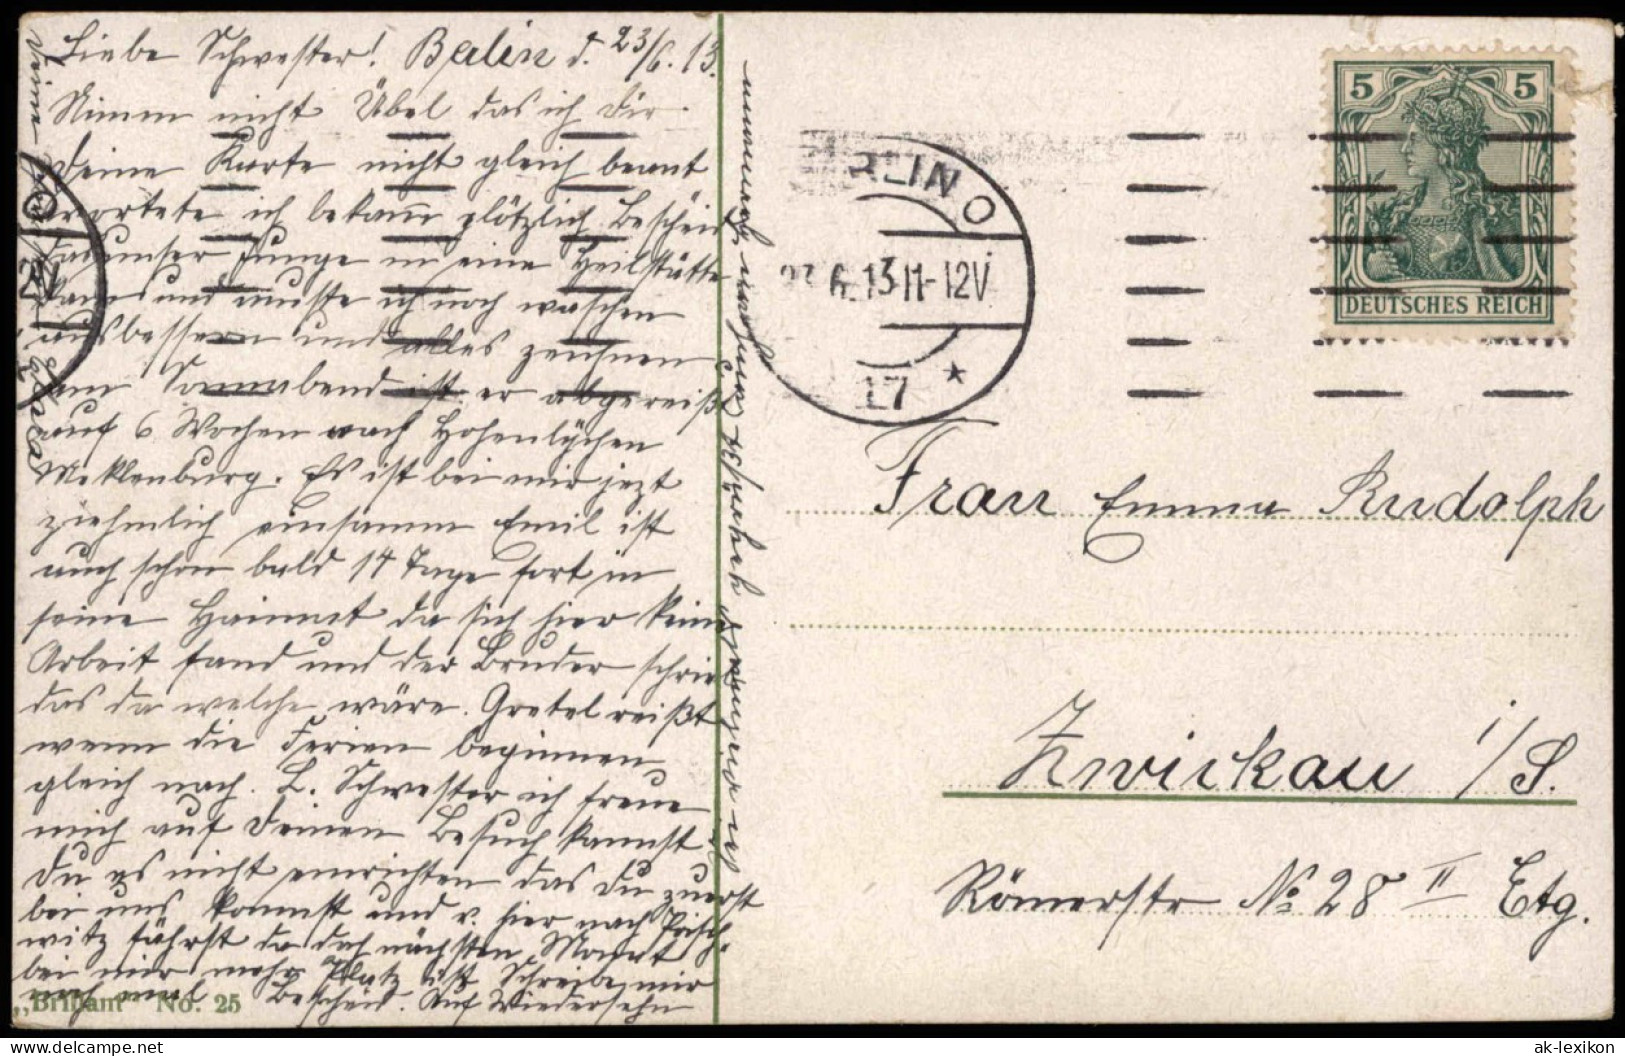 Liebe Schwester! Berlin d. 23/6. 13.
Nimm nicht Übel das ich Dir
Deine Karte nicht gleich beant
wortete ich bekam plötzlich Bescheid
das unser Junge in eine Heilstätte
kam und musste ich noch waschen
ausbessern und alles zeichnen
am Sonnabend ist er abgereißt
auf 6 Wochen nach Hohenlychen
Meklenburg. Es ist bei mir jezt
ziehmlich einsamm Emil ist
auch schon bald 14 Tage fort in
seine Haimat da sich hier keine
Arbeit fand und der Bruder schrieb
das da welche wäre. Gretel reißt
wenn die Ferien beginnen
gleich nach. L. Schwester ich freue
mich auf Deinen Besuch kannst
Du es nicht einrichten das Du zuerst
bei uns kommst und v. hier nach Prisch-
witz fährst da doch nächsten Monat
bei mir mehr Platz ist Schreibe mir
noch mal Bescheid. Auf Wiedersehn
Deine
Clara
„Brillant" No. 25
RLIN O
23. 6. 13 11-12V
17 *
5 5
DEUTSCHES REICH
Frau Emma Rudolph
Zwickau i/S.
Römerstr No 28 II Etg.
ak-lexikon.com